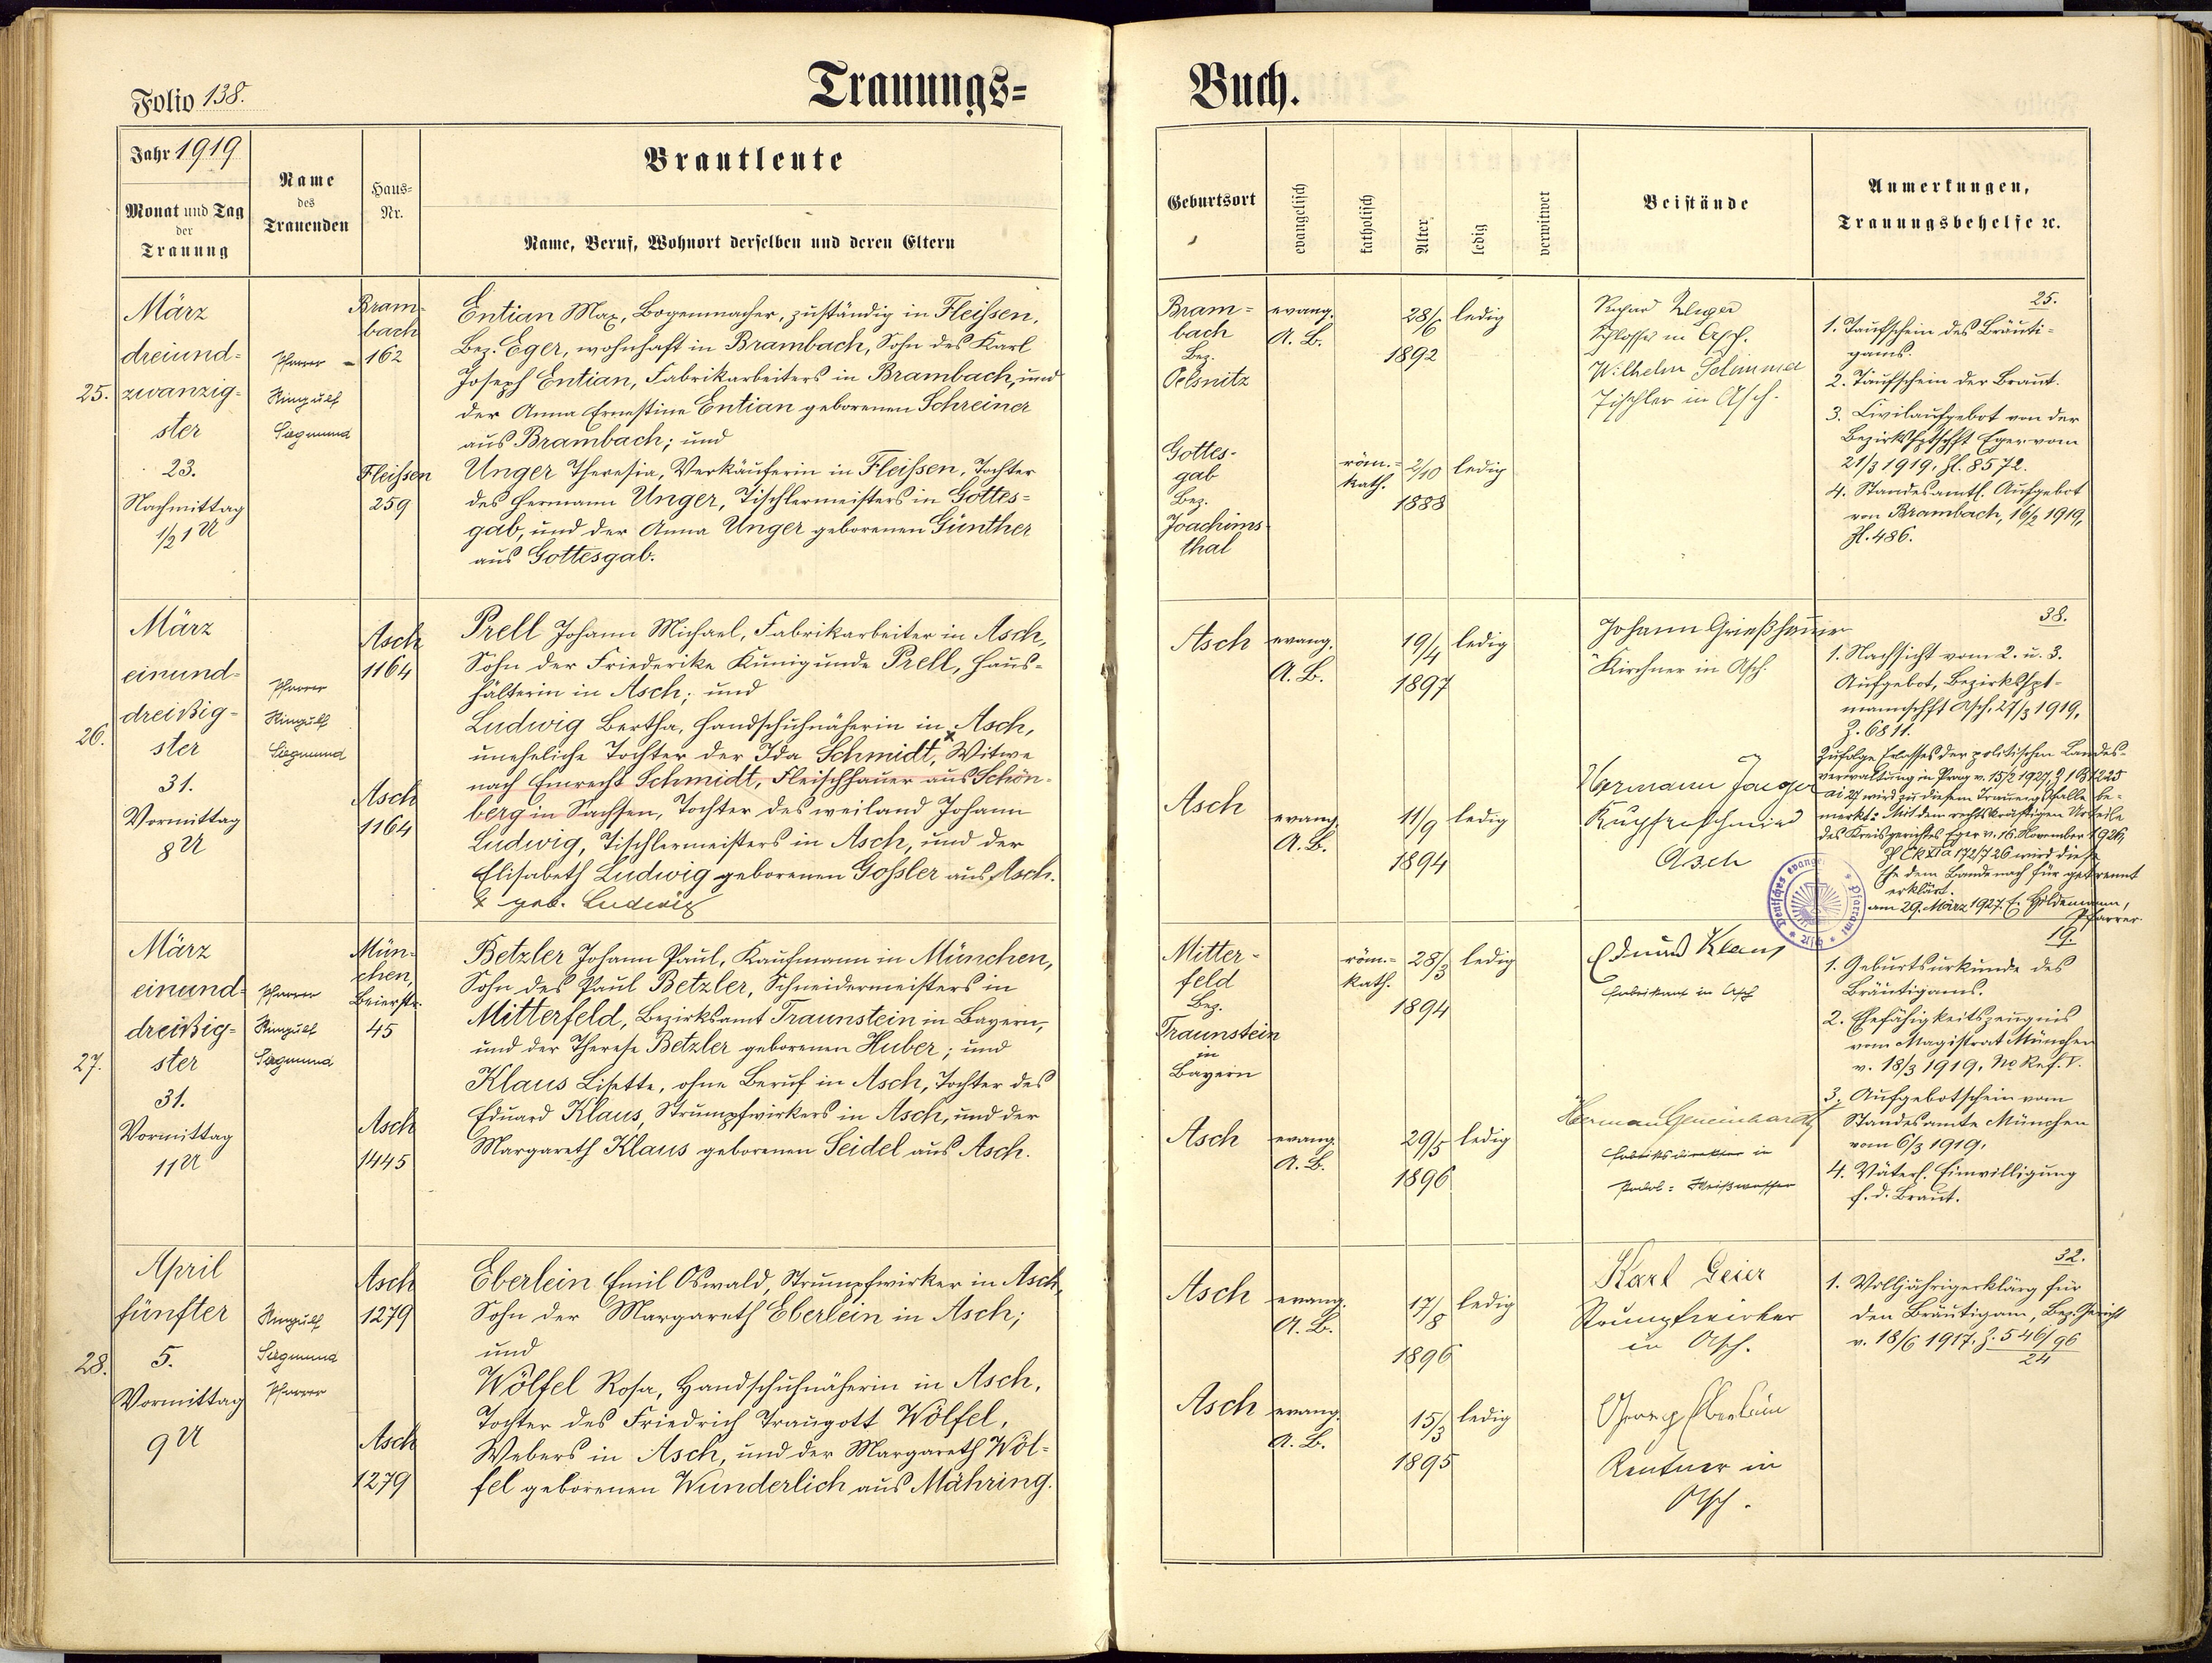 Trauungs=
Buch.
Folio 138.
Jahr 1919
Monat und Tag
der
Trauung
Name
des
Trauenden
Haus=
Nr.
Brautleute
Name, Beruf, Wohnort derselben und deren Eltern
Geburtsort
evangelisch
katholisch
Alter
ledig
verwitwet
Beistände
Anmerkungen,
Trauungsbehelfe ꝛc.
25.
März
dreiund=
zwanzig=
ster
23.
Nachmittag
1/2 1 U
Pfarrer
Ringulf
Siegmund
Bram-
bach
162
Fleißen
259
Entian Max, Bogenmacher, zuständig in Fleißen,
Bez. Eger, wohnhaft in Brambach, Sohn des Karl
Joseph Entian, Fabrikarbeiters in Brambach, und
der Anna Ernestine Entian geborenen Schreiner
aus Brambach; und
Unger Theresia, Verkäuferin in Fleißen, Tochter
des Hermann Unger, Tischlermeisters in Gottes=
gab, und der Anna Unger geborenen Günther
aus Gottesgab.
Bram=
bach
Bez.
Oelsnitz
evang.
A. B.
28/6
1892
ledig
Gottes-
gab
Bez.
Joachims-
thal
röm.=
kath.
2/10
1888
ledig
Schlosser in Asch.
Wilhelm
Tischler in Asch.
25.
1. Taufschein des Bräuti=
gams.
2. Taufschein der Braut.
3. Civilaufgebot von der
Bezirkshptschft Eger vom
21/3 1919, Zl. 8572.
4. Standesamtl. Aufgebot
von Brambach, 16/2 1919,
Zl. 486.
26.
März
einund=
dreißig=
ster
31.
Vormittag
8 U
Pfarrer
Ringulf
Siegmund
Asch
1164
Asch
1164
Prell Johann Michael, Fabrikarbeiter in Asch,
Sohn der Friederike Kunigunde Prell, Haus=
hälterin in Asch; und
Ludwig Bertha, Handschuhnäherin in Asch,
uneheliche Tochter der Ida Schmidt,x Witwe
nach Heinrich Schmidt, Fleischhauer aus Schön=
berg in Sachsen, Tochter des weiland Johann
Ludwig, Tischlermeisters in Asch, und der
Elisabeth Ludwig geborenen Goßler aus Asch.
x geb. Ludwig
Asch
evang.
A. B.
19/4
1897
ledig
Asch
evang.
A. B.
11/9
1894
ledig
Johann Grießhammer
Kirchner in Asch.
Hermann Jaeger
Kupferschmied
Asch
38.
1. Nachsicht vom 2. u. 3.
Aufgebot, Bezirkshpt=
mannschft Asch, 27/3 1919,
Z. 6811.
Zufolge Erlasses der politischen Landes-
verwaltung in Prag v. 15/2 1927,
ai 27 wird zu diesem Trauungsfalle be-
merkt: Mit dem rechtskräftigen Urteile
des Kreisgerichtes Eger v. 16. November 1926,
Zl Ck XIa 172/7 26 wird diese
Ehe dem Bande nach für getrennt
erklärt.
am 29. März 1927. Pfarrer.
Deutsches evang. Pfarramt Asch
27.
März
einund=
dreißig=
ster
31.
Vormittag
11 U
Pfarrer
Ringulf
Siegmund
Mün-
chen,
Beierstr.
45
Asch
1445
Betzler Johann Paul, Kaufmann in München,
Sohn des Paul Betzler, Schneidermeisters in
Mitterfeld, Bezirksamt Traunstein in Bayern,
und der Therese Betzler geborenen Huber; und
Klaus Lisette, ohne Beruf in Asch, Tochter des
Eduard Klaus, Strumpfwirkers in Asch, und der
Margareth Klaus geborenen Seidel aus Asch.
Mitter-
feld
Bez.
Traunstein
in
Bayern
röm.=
kath.
28/3
1894
ledig
Asch
evang.
A. B.
29/5
1896
ledig
Eduard Klaus
Fabrikant in Asch
Herman Gemeinhardt
Fabriksdirektor in
19.
1. Geburtsurkunde des
Bräutigams.
2. Ehefähigkeitszeugnis
vom Magistrat München
v. 18/3 1919, No Ref. V.
3. Aufgebotschein vom
Standesamte München
vom 6/3 1919.
4. Väterl. Einwilligung
f. d. Braut.
28.
April
fünfter
5.
Vormittag
9 U
Ringulf
Siegmund
Pfarrer
Asch
1279
Asch
1279
Eberlein Emil Oswald, Strumpfwirker in Asch,
Sohn der Margareth Eberlein in Asch;
und
Wölfel Rosa, Handschuhnäherin in Asch,
Tochter des Friedrich Traugott Wölfel,
Webers in Asch, und der Margareth Wöl=
fel geborenen Wunderlich aus Mähring.
Asch
evang.
A. B.
17/8
1896
ledig
Asch
evang.
A. B.
15/3
1895
ledig
Karl Geier
Strumpfwirker
in Asch.
Georg Eberlein
Rentner in
Asch.
32.
1. Volljährigerklärg für
den Bräutigam, Bez. Gericht
v. 18/6 1917, Z. 546/96
24